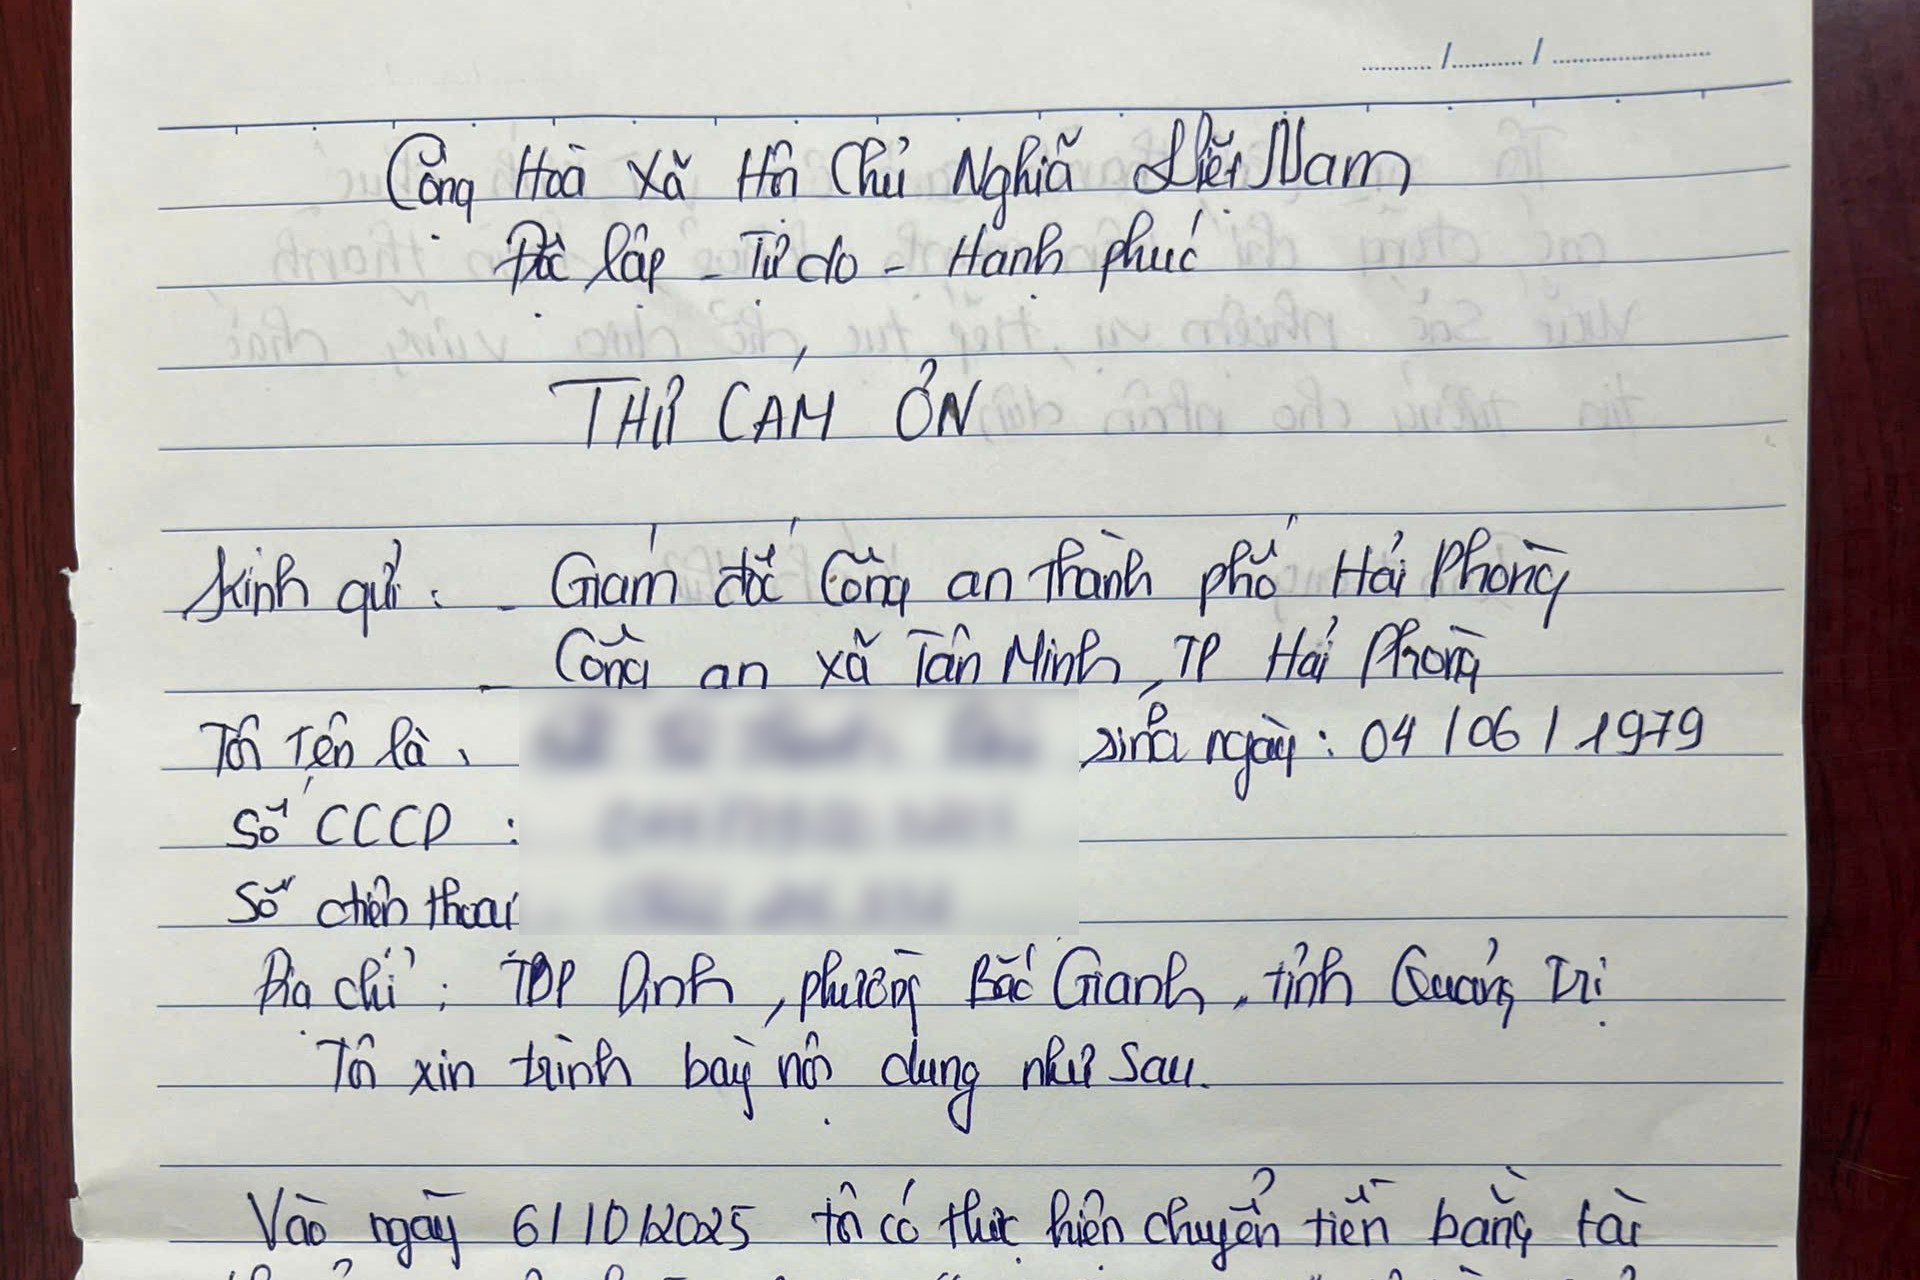 ...../...../..........
Cộng Hoà Xã Hội Chủ Nghĩã Việt Nam
Độc lập - Tự do - Hạnh phúc
THƯ CẢM ƠN
Kính gửi : - Giám đốc Công an thành phố Hải Phòng
- Công an xã Tân Minh, TP Hải Phòng
Tôi tên là : sinh ngày : 04/06/1979
Số CCCD :
Số điện thoại
Địa chỉ : TDP Định, phường Bắc Gianh, tỉnh Quảng Trị
Tôi xin trình bày nội dung như sau.
Vào ngày 6/10/2025 tôi có thực hiện chuyển tiền bằng tài